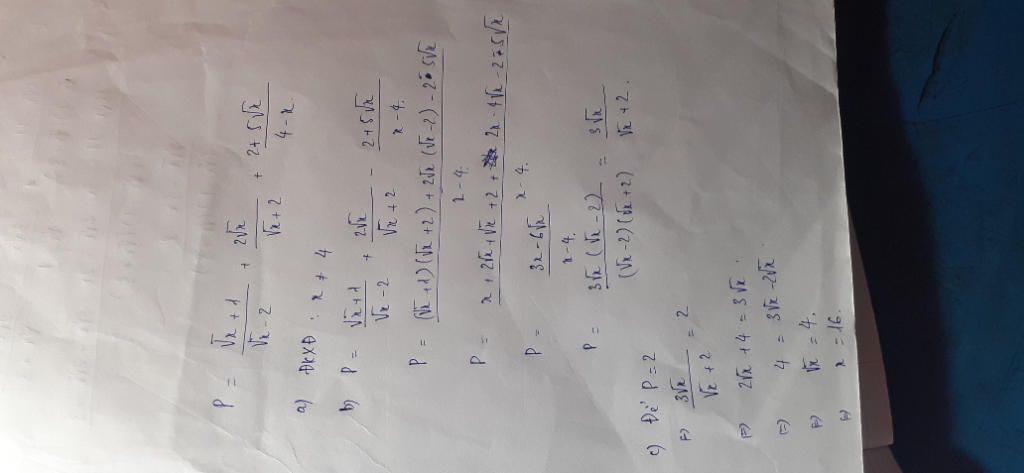 P = (√x + 1)/(√x - 2) + 2√x/(√x + 2) + (2 + 5√x)/(4 - x).
a) ĐKXĐ : x ≠ 4
b) P = (√x + 1)/(√x - 2) + 2√x/(√x + 2) - (2 + 5√x)/(x - 4).
P = ((√x + 1)(√x + 2) + 2√x (√x - 2) - 2 - 5√x)/(x - 4.)
P = (x + 2√x + √x + 2 + 2x - 4√x - 2 - 5√x)/(x - 4.)
P = (3x - 6√x)/(x - 4.)
P = 3√x (√x - 2)/((√x - 2)(√x + 2)) = 3√x/(√x + 2).
c) Để P = 2
(=) 3√x/(√x + 2) = 2
(=) 2√x + 4 = 3√x.
(=) 4 = 3√x - 2√x
(=) √x = 4.
(=) x = 16.